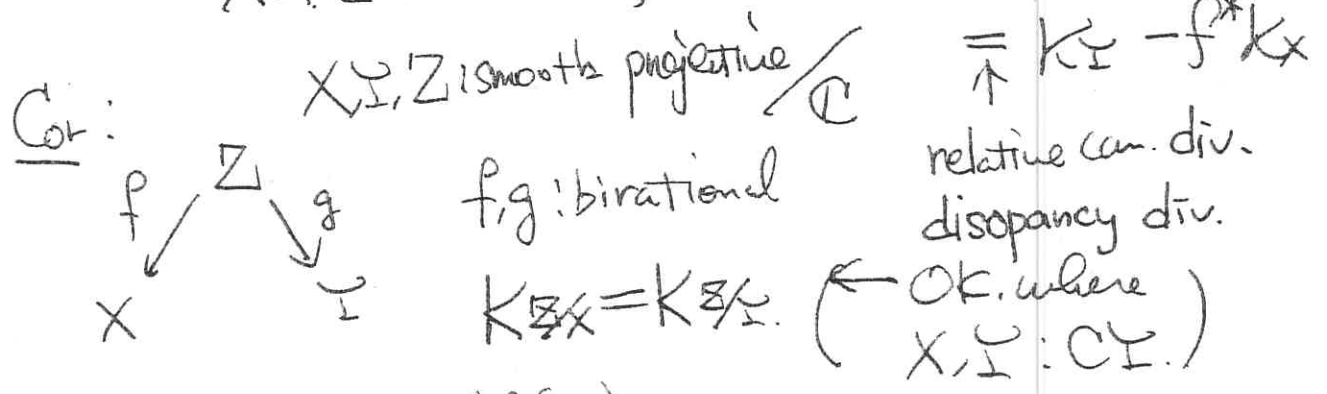 X, Y, Z : smooth projective / ℂ
= K_Y - f^*K_X
↑
relative can. div.
disopancy div.
Cor :
Z
f g
X Y
f, g : birational
K_{Z/X} = K_{Z/Y}. (← OK. where
X, Y : CY.)